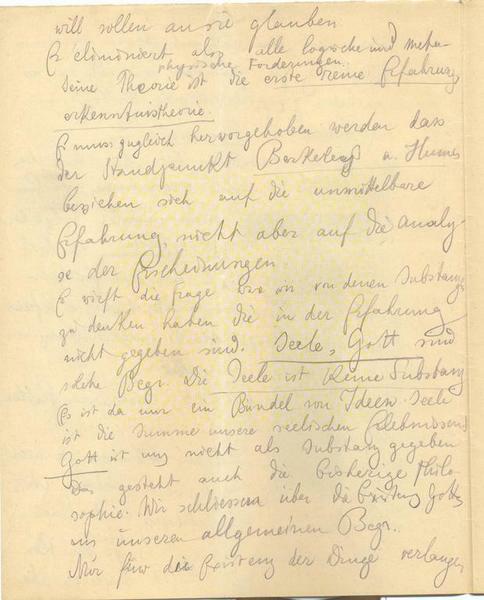 will sollen an sie glauben
Er eliminiert also alle logische und meta-
physische Forderungen.
Seine Theorie ist die erste reine Erfahrung
erkenntnistheorie.
Er muss zugleich hervorgehoben werden dass
der Standpunkt Berkeleys u. Humes
beziehen sich auf die unmittelbare
Erfahrung, nicht aber auf die Analy-
se der Erscheinungen.
Er wirft die Frage was wir von denen Substanz
zu denken haben die in der Erfahrung
nicht gegeben sind. Seele, Gott sind
solche Begr. Die Seele ist keine Substanz
Es ist da nur ein Bündel von Ideen Seele
ist die Summe unsere seelischen Erlebnissen
Gott ist uns nicht als Substanz gegeben
Das gesteht auch die bisherige Philo-
sophie. Wir schliessen über die Existenz Gottes
aus unseren allgemeinen Begr.
Nur für die Existenz der Dinge verlangen